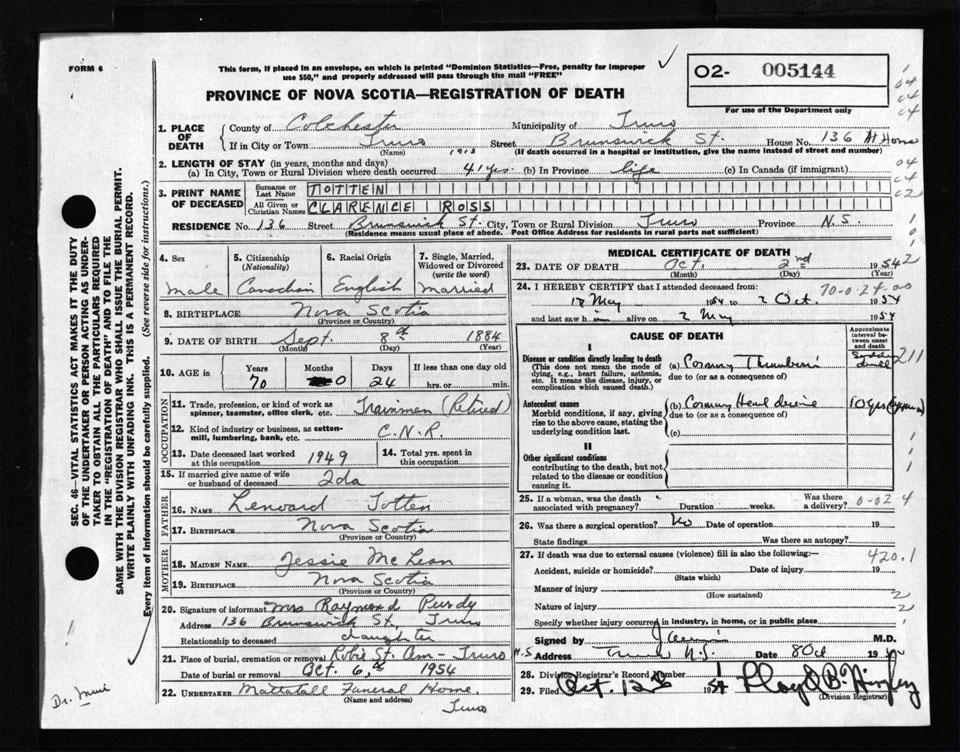 FORM 6
This form, if placed in an envelope, on which is printed "Dominion Statistics—Free, penalty for improper
use $50," and properly addressed will pass through the mail "FREE"
O2- 005144
For use of the Department only
PROVINCE OF NOVA SCOTIA—REGISTRATION OF DEATH
1. PLACE OF DEATH
County of Colchester Municipality of Truro
If in City or Town Truro Street Brunswick St. House No. 136 At Home
(Name) 1913 (If death occurred in a hospital or institution, give the name instead of street and number)
2. LENGTH OF STAY (in years, months and days)
(a) In City, Town or Rural Division where death occurred 41 yrs. (b) In Province life (c) In Canada (if immigrant)
3. PRINT NAME OF DECEASED
Surname or Last Name TOTTEN
All Given or Christian Names CLARENCE ROSS
RESIDENCE No. 136 Street Brunswick St. City, Town or Rural Division Truro Province N.S.
(Residence means usual place of abode. Post Office Address for residents in rural parts not sufficient)
4. Sex
male
5. Citizenship
(Nationality)
Canadian
6. Racial Origin
English
7. Single, Married,
Widowed or Divorced
(write the word)
married
8. BIRTHPLACE Nova Scotia
(Province or Country)
9. DATE OF BIRTH Sept. 8th 1884
(Month) (Day) (Year)
10. AGE in
Years Months Days If less than one day old
70 0 24 hrs. or min.
OCCUPATION
11. Trade, profession, or kind of work as
spinner, teamster, office clerk, etc. Trainman (Retired)
12. Kind of industry or business, as cotton-
mill, lumbering, bank, etc. C.N.R.
13. Date deceased last worked
at this occupation 1949
14. Total yrs. spent in
this occupation
15. If married give name of wife
or husband of deceased Ida
FATHER
16. Name Lenward Totten
17. Birthplace Nova Scotia
(Province or Country)
MOTHER
18. MAIDEN NAME Jessie McLean
19. Birthplace Nova Scotia
(Province or Country)
20. Signature of informant Mrs Raymond Purdy
Address 136 Brunswick St, Truro
Relationship to deceased daughter
21. Place of burial, cremation or removal Robie St. Cem - Truro N.S
Date of burial or removal Oct. 6th 1954
22. UNDERTAKER Mattatall Funeral Home.
(Name and address) Truro
MEDICAL CERTIFICATE OF DEATH
23. DATE OF DEATH Oct. 2nd 1954
(Month) (Day) (Year)
24. I HEREBY CERTIFY that I attended deceased from: 70-0-24-00
May 1954 to 2 Oct. 1954
and last saw him alive on 2 May 1954
CAUSE OF DEATH
Approximate
interval between
onset
and death
I
Disease or condition directly leading to death
(This does not mean the mode of
dying, e.g., heart failure, asthenia,
etc. It means the disease, injury, or
complication which caused death.)
(a) Coronary Thrombosis
due to (or as a consequence of)
Antecedent causes
Morbid conditions, if any, giving
rise to the above cause, stating the
underlying condition last.
(b) Coronary Heart disease 10 yrs
due to (or as a consequence of)
(c)
II
Other significant conditions
contributing to the death, but not
related to the disease or condition
causing it.
25. If a woman, was the death
associated with pregnancy? Duration weeks. Was there
a delivery? 0-02 4
26. Was there a surgical operation? No Date of operation 19
State findings Was there an autopsy?
27. If death was due to external causes (violence) fill in also the following: 420.1
Accident, suicide or homicide? Date of injury 19
(State which)
Manner of injury
(How sustained)
Nature of injury
Specify whether injury occurred in industry, in home, or in public place
Signed by M.D.
Address Truro N.S. Date 8 Oct 19
28. Division Registrar's Record Number
29. Filed Oct. 12th 1954
(Division Registrar)
SEC. 46—VITAL STATISTICS ACT MAKES IT THE DUTY
OF THE UNDERTAKER OR PERSON ACTING AS UNDER-
TAKER TO OBTAIN ALL THE PARTICULARS REQUIRED
IN THE "REGISTRATION OF DEATH" AND TO FILE THE
SAME WITH THE DIVISION REGISTRAR WHO SHALL ISSUE THE BURIAL PERMIT.
WRITE PLAINLY WITH UNFADING INK. THIS IS A PERMANENT RECORD.
Every item of information should be carefully supplied. (See reverse side for instructions.)